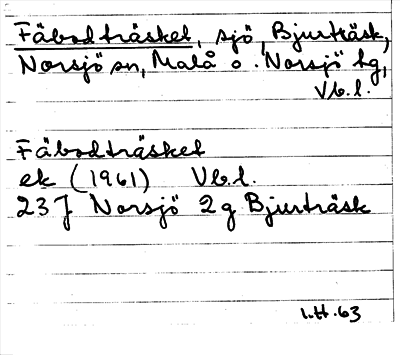 Fäbodträsket, sjö, Bjurträsk,
Norsjö sn, Malå o. Norsjö tg,
Vb.l.
Fäbodträsket
ek (1961) Vb.l.
23J Norsjö 2g Bjurträsk
1.H.63